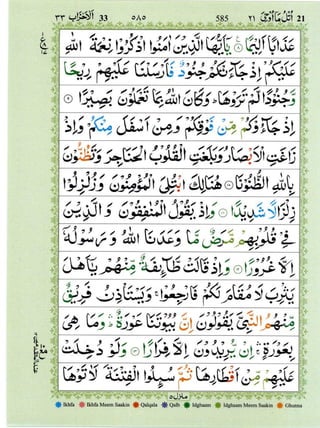 ٣٣ اَلْاَحْزَاب 33 ٥٨٥ 585 اُتْلُ مَآ اُوْحِیَ ٢١ 21
عَذَابًا اَلِیْمًا ۟ یٰۤاَیُّهَا الَّذِیْنَ اٰمَنُوا اذْكُرُوْا نِعْمَةَ اللّٰهِ
عَلَیْكُمْ اِذْ جَآءَتْكُمْ جُنُوْدٌ فَاَرْسَلْنَا عَلَیْهِمْ رِیْحًا
وَّجُنُوْدًا لَّمْ تَرَوْهَا ؕ وَكَانَ اللّٰهُ بِمَا تَعْمَلُوْنَ بَصِیْرًا ۟
اِذْ جَآءُوْكُمْ مِّنْ فَوْقِكُمْ وَمِنْ اَسْفَلَ مِنْكُمْ وَاِذْ
زَاغَتِ الْاَبْصَارُ وَبَلَغَتِ الْقُلُوْبُ الْحَنَاجِرَ وَتَظُنُّوْنَ
بِاللّٰهِ الظُّنُوْنَا ۟ هُنَالِكَ ابْتُلِیَ الْمُؤْمِنُوْنَ وَزُلْزِلُوْا
زِلْزَالًا شَدِیْدًا ۟ وَاِذْ یَقُوْلُ الْمُنٰفِقُوْنَ وَالَّذِیْنَ
فِیْ قُلُوْبِهِمْ مَّرَضٌ مَّا وَعَدَنَا اللّٰهُ وَرَسُوْلُهٗۤ
اِلَّا غُرُوْرًا ۟ وَاِذْ قَالَتْ طَّآىِٕفَةٌ مِّنْهُمْ یٰۤاَهْلَ
یَثْرِبَ لَا مُقَامَ لَكُمْ فَارْجِعُوْا ۚ وَیَسْتَاْذِنُ فَرِیْقٌ
مِّنْهُمُ النَّبِیَّ یَقُوْلُوْنَ اِنَّ بُیُوْتَنَا عَوْرَةٌ ۛؕ وَمَا هِیَ
بِعَوْرَةٍ ۛۚ اِنْ یُّرِیْدُوْنَ اِلَّا فِرَارًا ۟ وَلَوْ دُخِلَتْ
عَلَیْهِمْ مِّنْ اَقْطَارِهَا ثُمَّ سُىِٕلُوا الْفِتْنَةَ لَاٰتَوْهَا
منزل ٥
Ikhfa Ikhfa Meem Saakin Qalqala Qalb Idghaam Idghaam Meem Saakin Ghunna